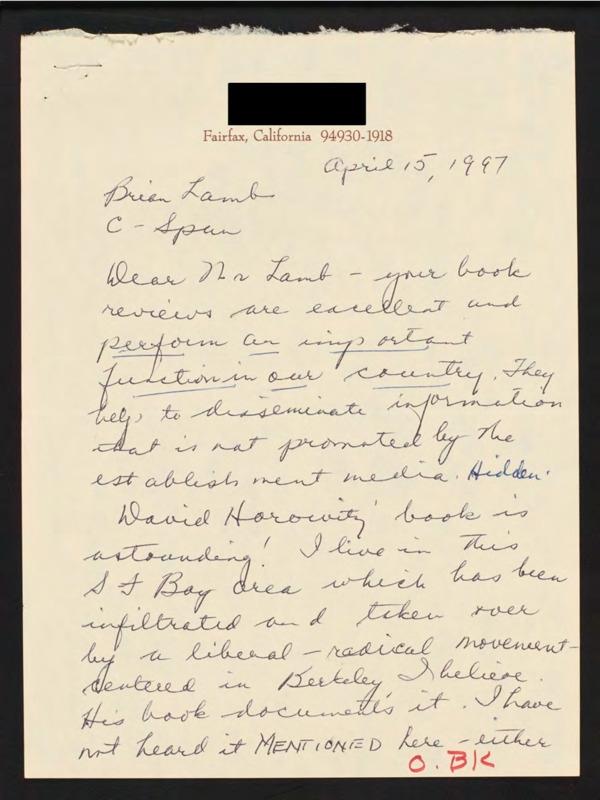 Fairfax, California 94930-1918
April 15, 1997
Brian Lamb
C-Span
Dear Mr Lamb - your book
reviews are excellent and
perform an important
function in our country. They
help to disseminate information
that is not promoted by the
establishment media. Hidden.
David Horowitz' book is
astounding! I live in this
S F Bay area which has been
infiltrated and taken over
by a liberal-radical movement-
centered in Berkeley, I believe.
His book documents it. I have
not heard it MENTIONED here - either
O. BK